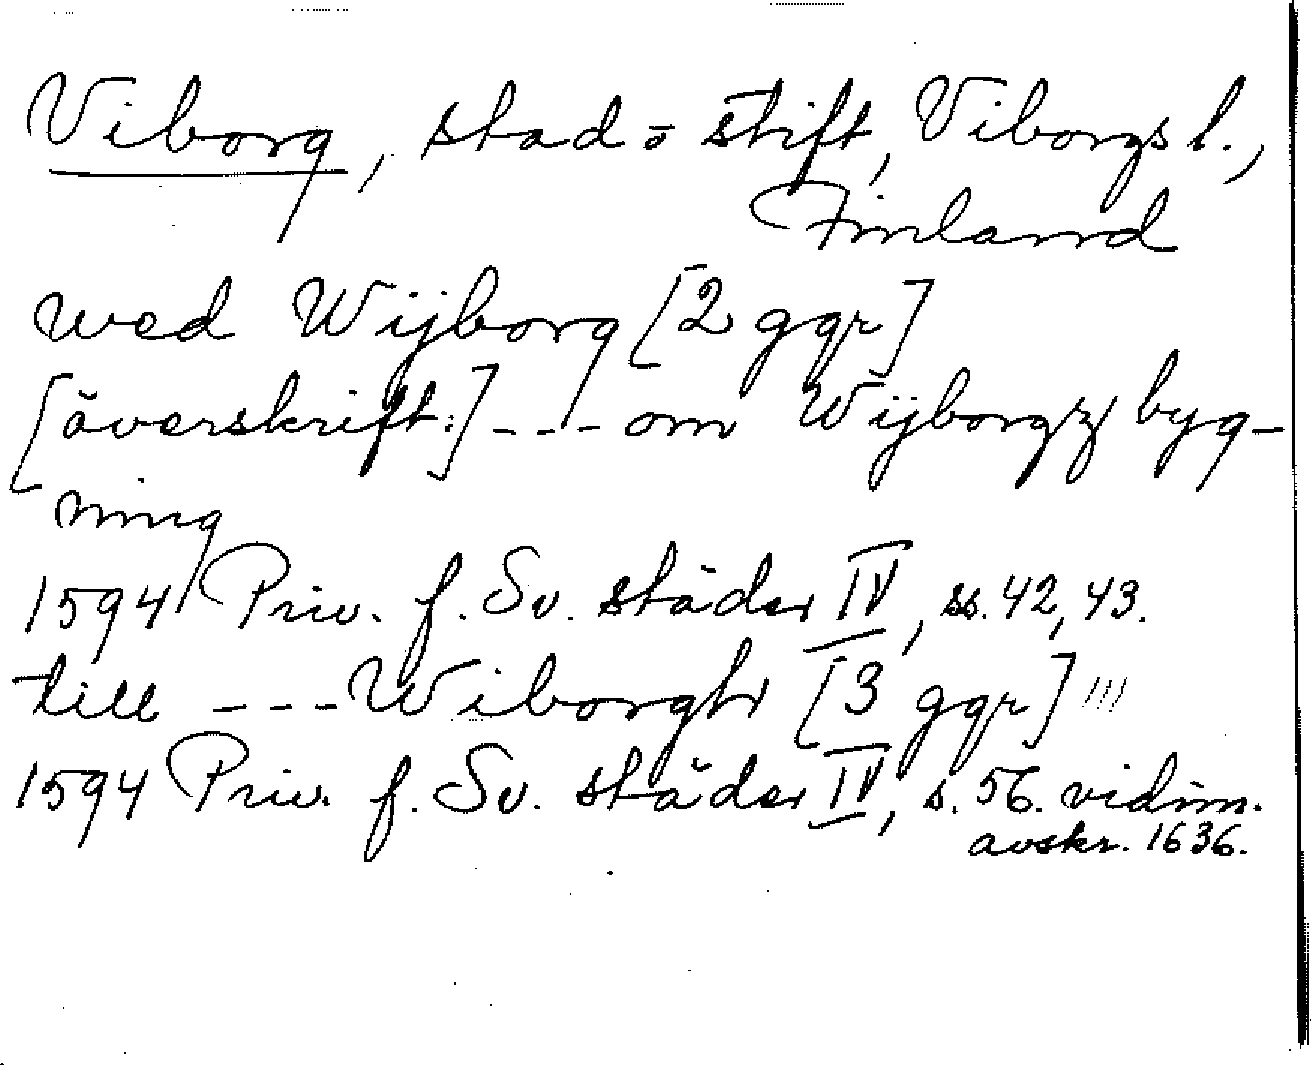 Viborg, stad o stift, Viborgs l.,
Finland
wed Wijborg [2 ggr]
[överskrift:] --- om Wijborgz byg-
ning
1594 Priv. f. Sv. städer IV, ss. 42, 43.
till --- Wiborgh [3 ggr] '''
1594 Priv. f. Sv. städer IV, s. 56. vidim.
avskr. 1636.